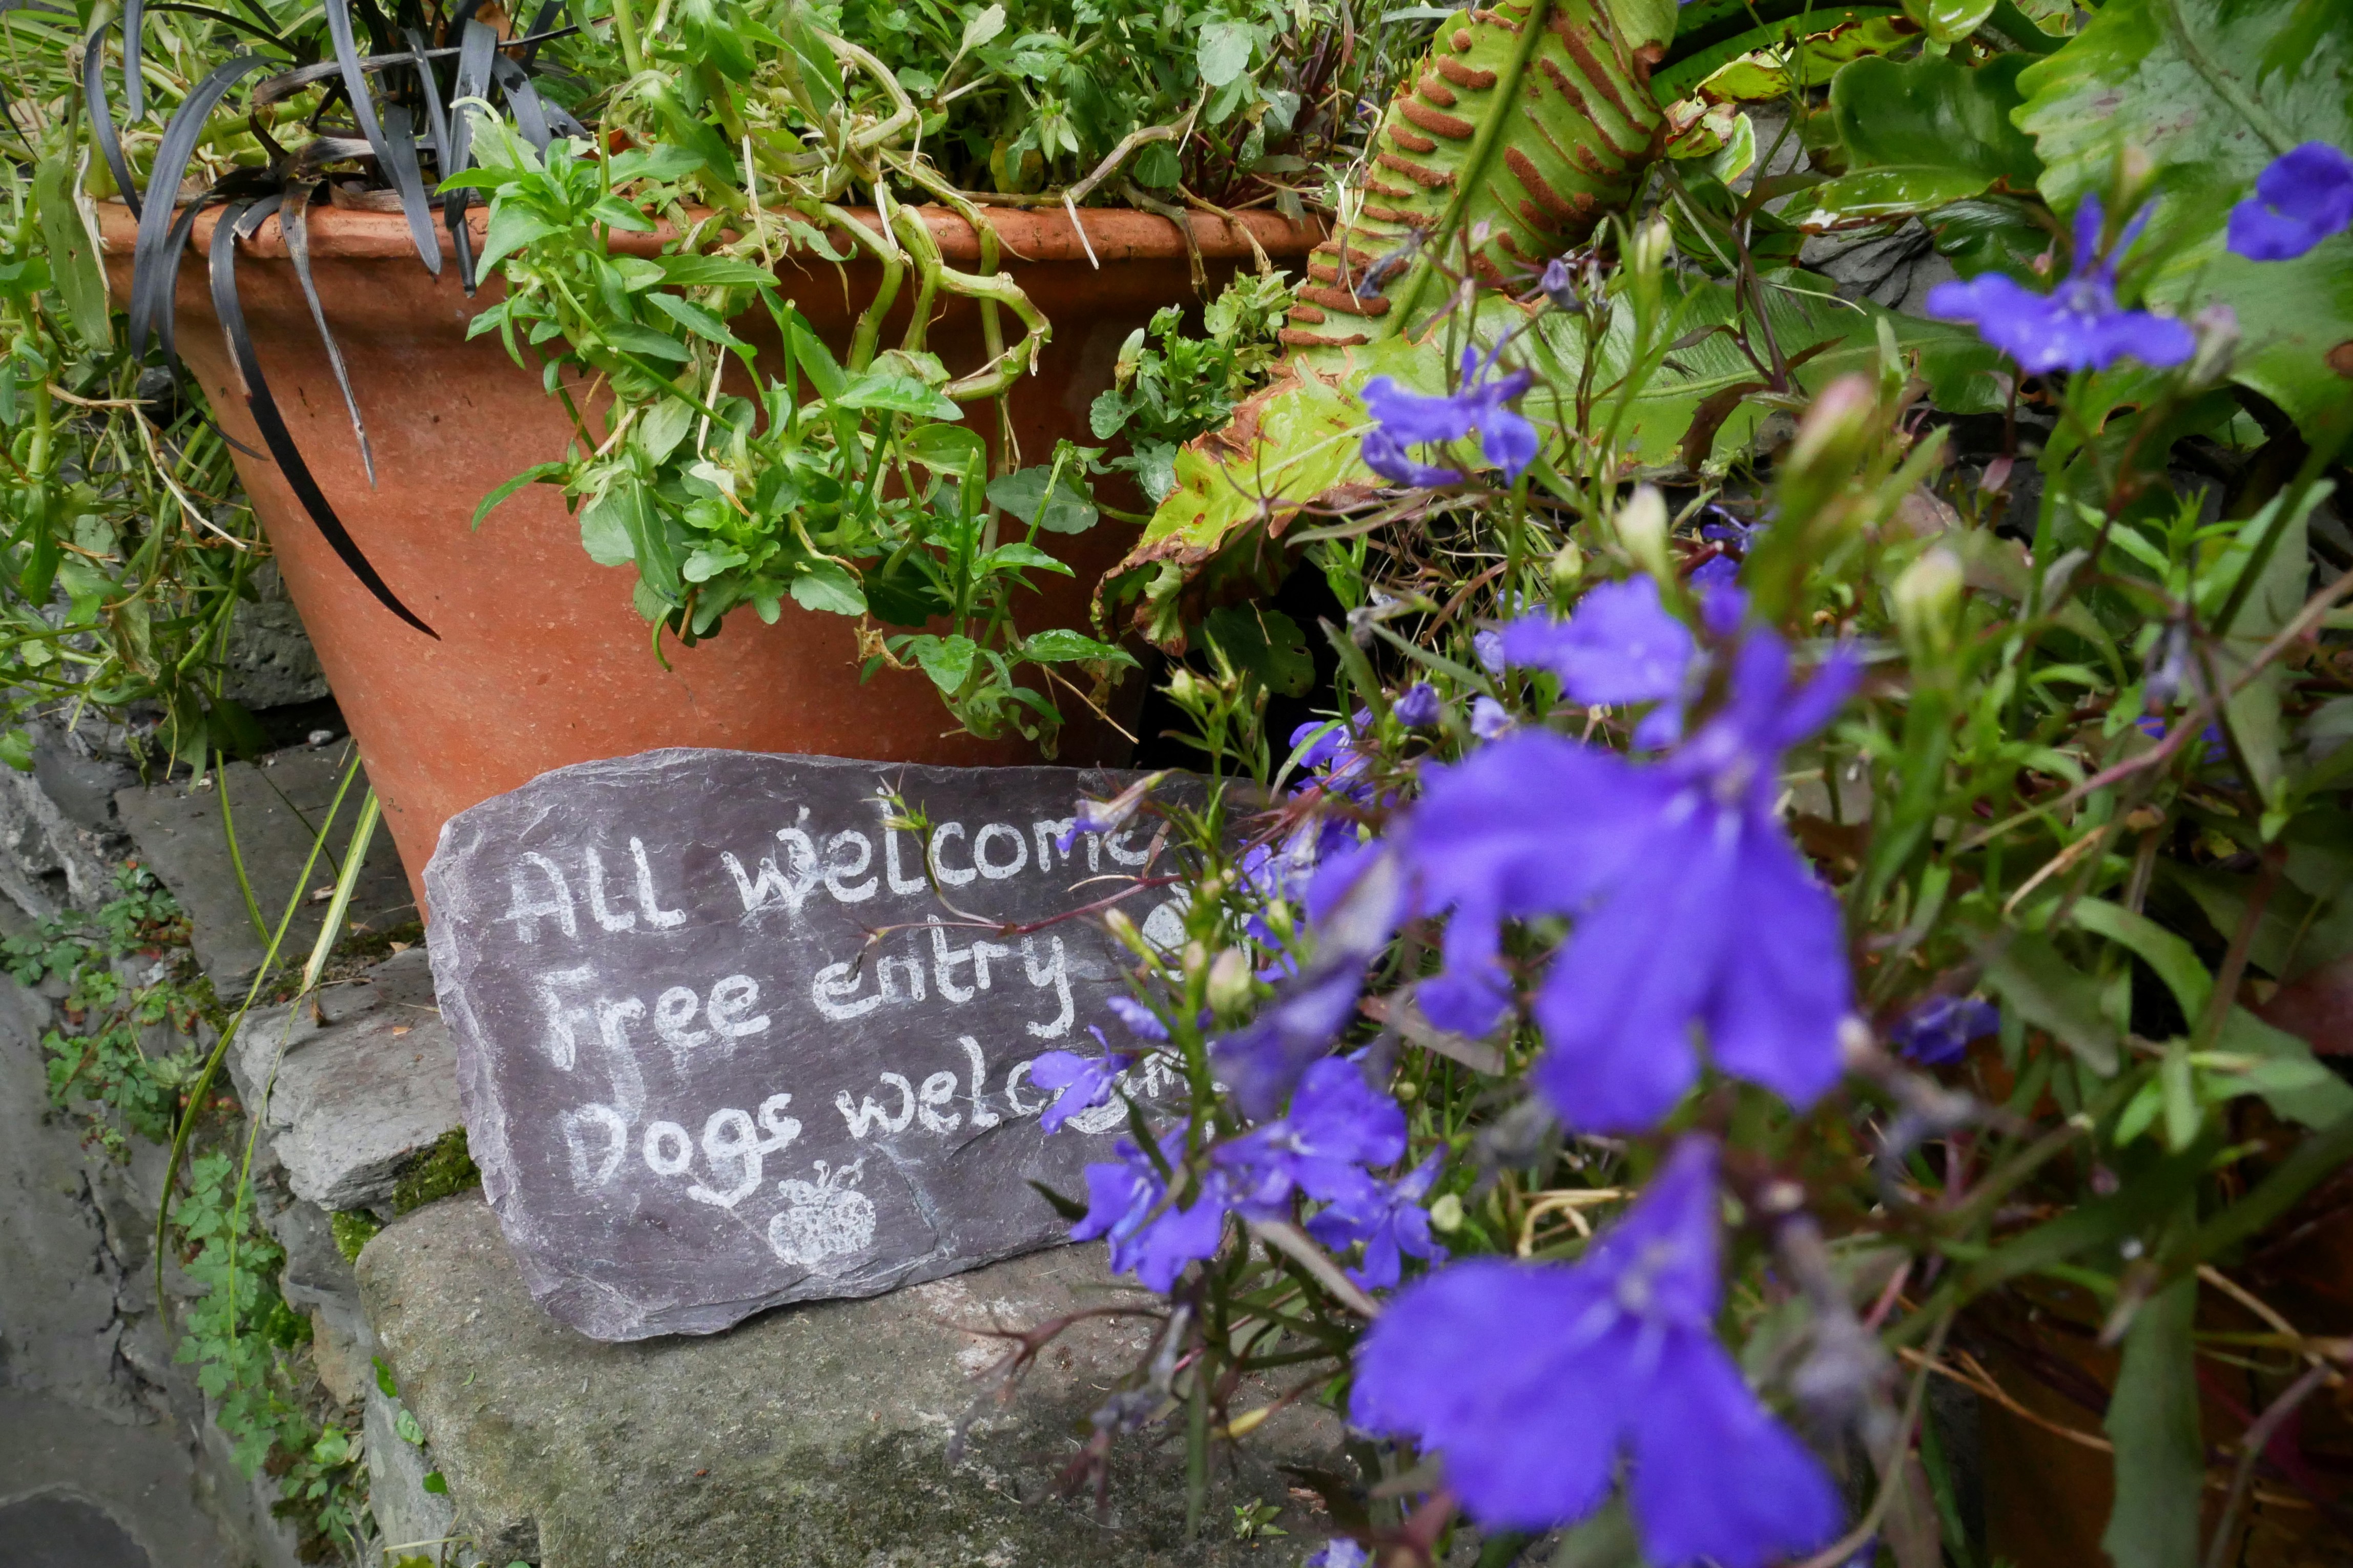 All welcome
Free entry
Dogs welcome